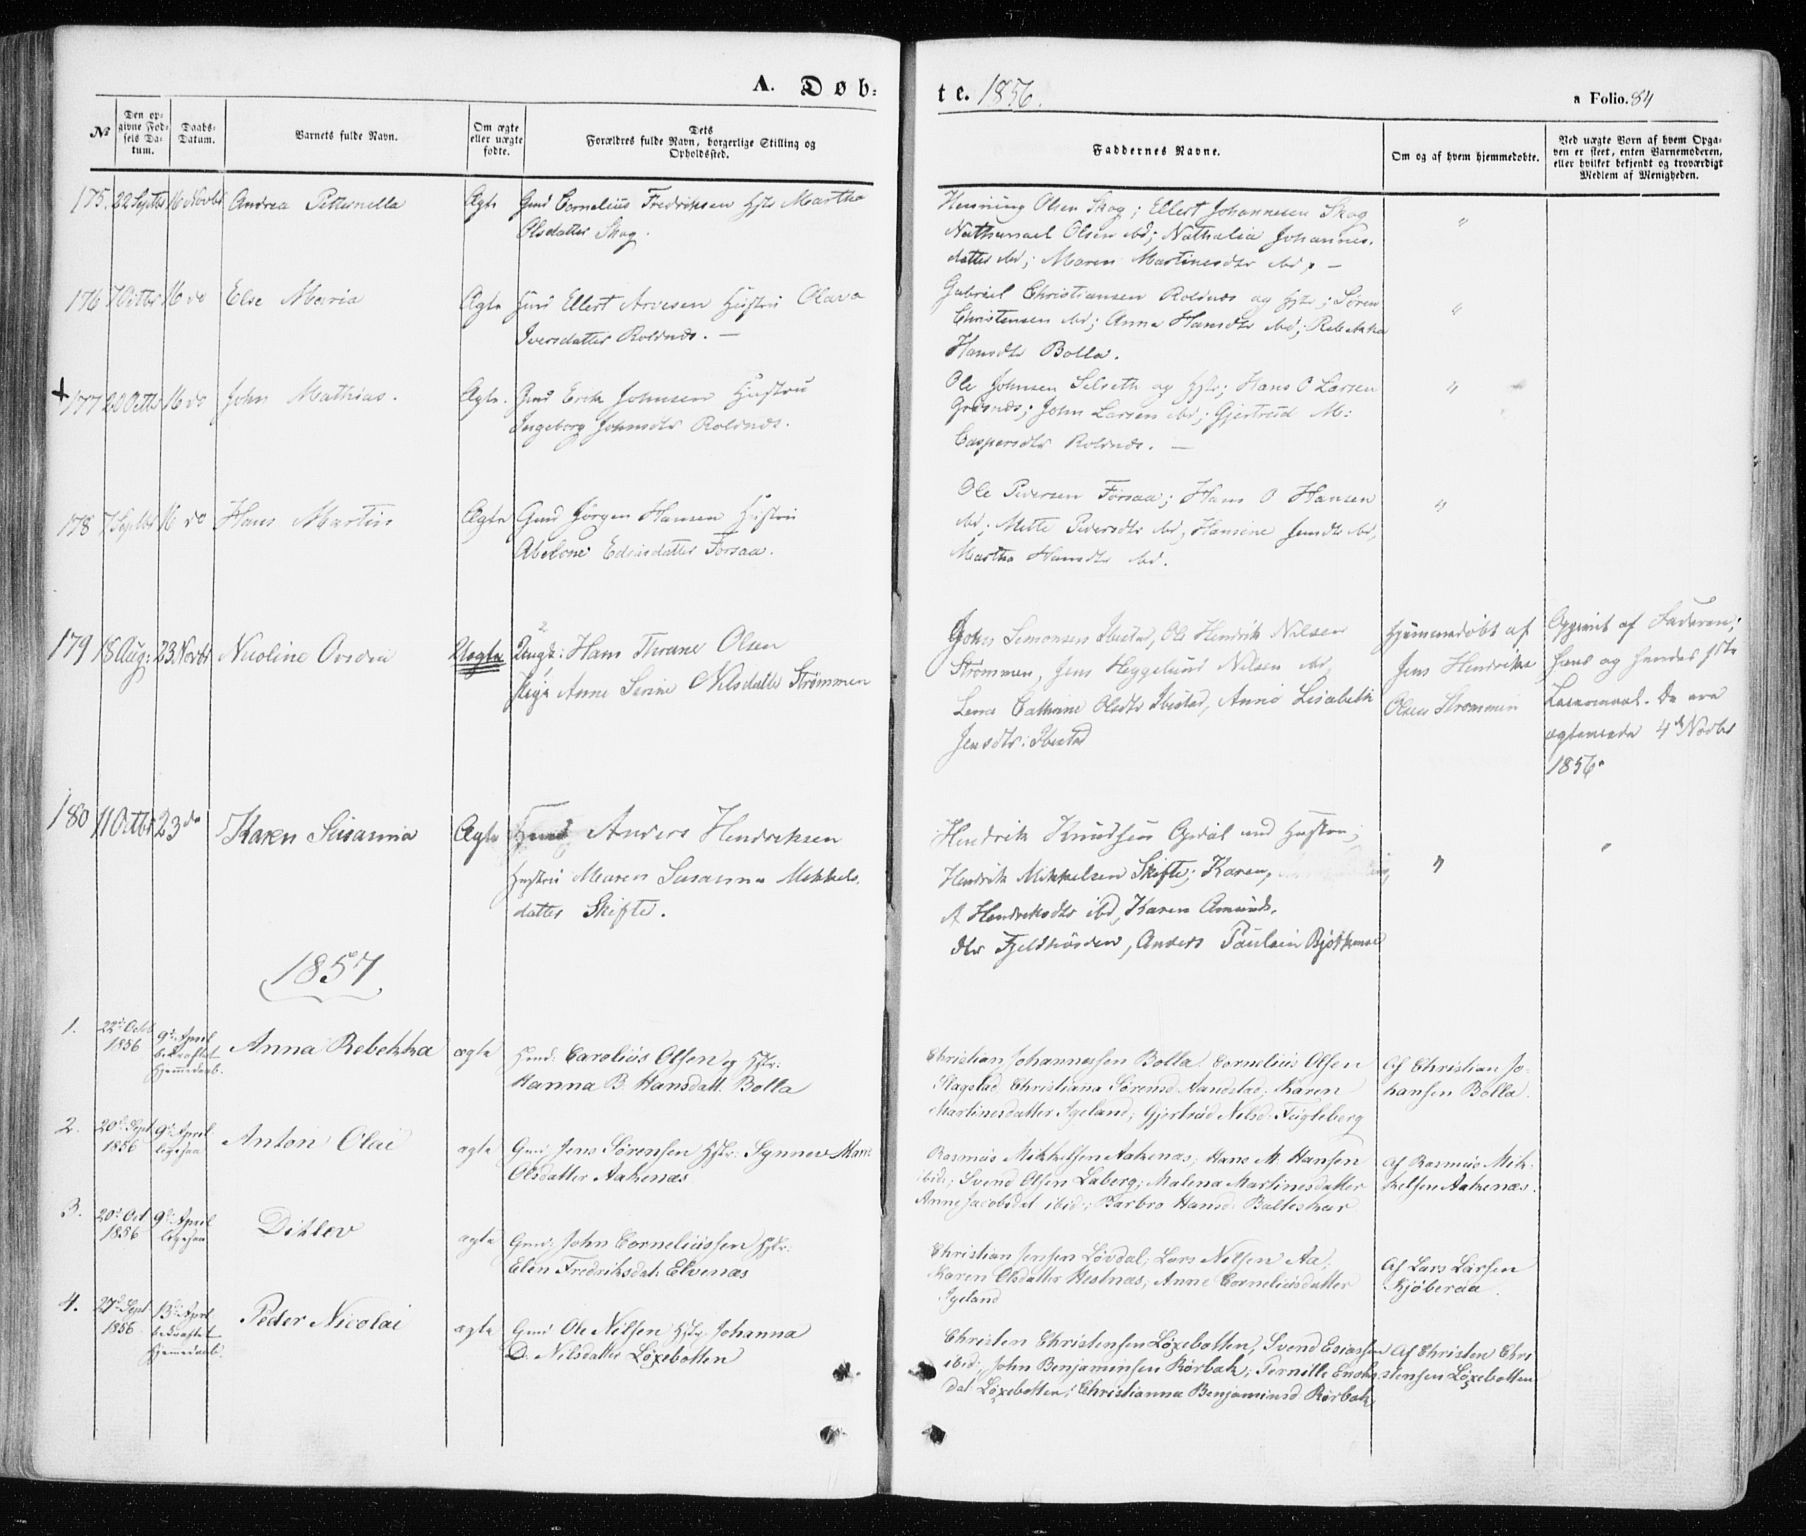 A. Døb-
te. 1856.
a Folio. 84
No
Den opgivne Fødsels Datum.
Daabs-Datum.
Barnets fulde Navn.
Om ægte eller uægte fødte.
Dets Forældres fulde Navn, borgerlige Stilling og Opholdssted.
Faddernes Navne.
Om og af hvem hjemmedøbte.
Ved uægte Børn af hvem Opgaven er skeet, enten Barnemoderen, eller hvilket bekjendt og troværdigt Medlem af Menigheden.
175. 22 Septbr 16 Novbr Andrea Petternella Ægte Gmd Cornelius Fredriksen Hstr Martha
Olsdatter Skog.
Henning Olsen Skog; Ellert Johannesen Skog
Nathanael Olsen ibd; Nathalia Johannes-
datter ibd; Maren Martinesdtr ibd. —
"
176 7 Octbr 16 do Else Maria Ægte Gmd Ellert Arvesen Hustru Olava
Iversdatter Roldnæs. —
Gabriel Christiansen Roldnæs og Hstr; Søren
Christensen ibd; Anna Hansdtr ibd; Rebekka
Hansdtr Bolla.
"
+ 177 20 Octbr 16 do John Mathias. Ægte. Gmd Erik Johnsen Hustru
Ingeborg Johnsdtr Roldnæs.
Ole Johnsen Selseth og Hstr; Hans O Larsen
Grønnæs; John Larsen ibd; Gjertrud M:
Caspersdtr Roldnæs. —
"
178 7 Septbr 16 do Hans Martin Ægte Gmd Jørgen Hansen Hustru
Abelone Edisdatter Forsaa.
Ole Pedersen Forsaa; Hans O Hansen
ibd; Mette Pedersdtr ibd, Hansine Jensdtr ibd,
Martha Hansdtr ibd.
"
179 18 Aug: 23. Novbr Nicoline Ovidia Uægte Ungk: Hans Thrane Olsen
Pige Anne Serine Nilsdatter Strømmen
John Simonsen Ibestad, Ole Hendrik Nilsen
Strømmen, Jens Heggelund Nilsen ibd,
Lena Cathrine Olsdtr Ibestad, Anne Lisabeth
Jensdtr: Ibestad
Hjemmedøbt af
Jens Hendrik
Olsen Strømmen
Opgivet af Faderen;
hans og hendes 1ste
Leiermaal. De ere
ægteviede 4de Novbr
1856.
180 11 Octbr 23 do Karen Susanna Ægte Gmd Anders Hendriksen
Hustru Maren Susanna Mikkels-
datter Skifte.
Hendrik Knudsen Opdal med Hustru;
Hendrik Mikkelsen Skifte; Karen,
A Hendriksdtr ibd, Karen Amunds-
dtr Fjeldhøiden, Anders Paulsen
"
"
1857
1. 22de Octb 1856 9de April bekræftet Hjemmedaab. Anna Rebekka ægte Gmd: Carolius Olsen og Hstr:
Hanna B. Hansdatt Bolla
Christian Johannessen Bolla. Cornelius Olsen
Slagstad, Christiana Sørensd. Aandstad, Karen
Martinesdatter Ageland; Gjertrud Nilsd. Fugleberg
Af Christian Jo-
hansen Bolla.
2. 20de Sept 1856 9de April ligesaa Anton Olai ægte Gmd Jens Sørensen Hstr: Synnev Mari
Olsdatter Aakenæs
Rasmus Mikkelsen Aakenæs; Hans M. Hansen
ibid; Svend Olsen Laberg; Malena Martinesdatter
Anne Jacobsdat ibid; Barbro Hansd. Balteskar
Af Rasmus Mik-
kelsen Aakenæs.
3. 20de Oct 1856 9de April ligesaa Ditlev ægte Gmd: John Corneliussen Hstr:
Elen Fredriksdat: Elvenæs
Christian Jensen Løvdal; Lars Nilsen Aa,
Karen Olsdatter Hestnæs; Anne Corneliusdatter
Ageland
Af Lars Larsen
Kjøberaa.
4. 27de Sept 1856 13de April bekræftet Hjemmedaab. Peder Nicolai ægte Gmd Ole Nilsen Hstr. Johanna
D. Nilsdatter Løxebotten
Christen Christensen Løxebotten, Svend Esiassen
ibid; John Benjaminsen Rørbak; Pernille Enoks
dat Løxebotten; Christianna Benjaminsd Rørbak
Af Christen Chri
stensen Løxebotten